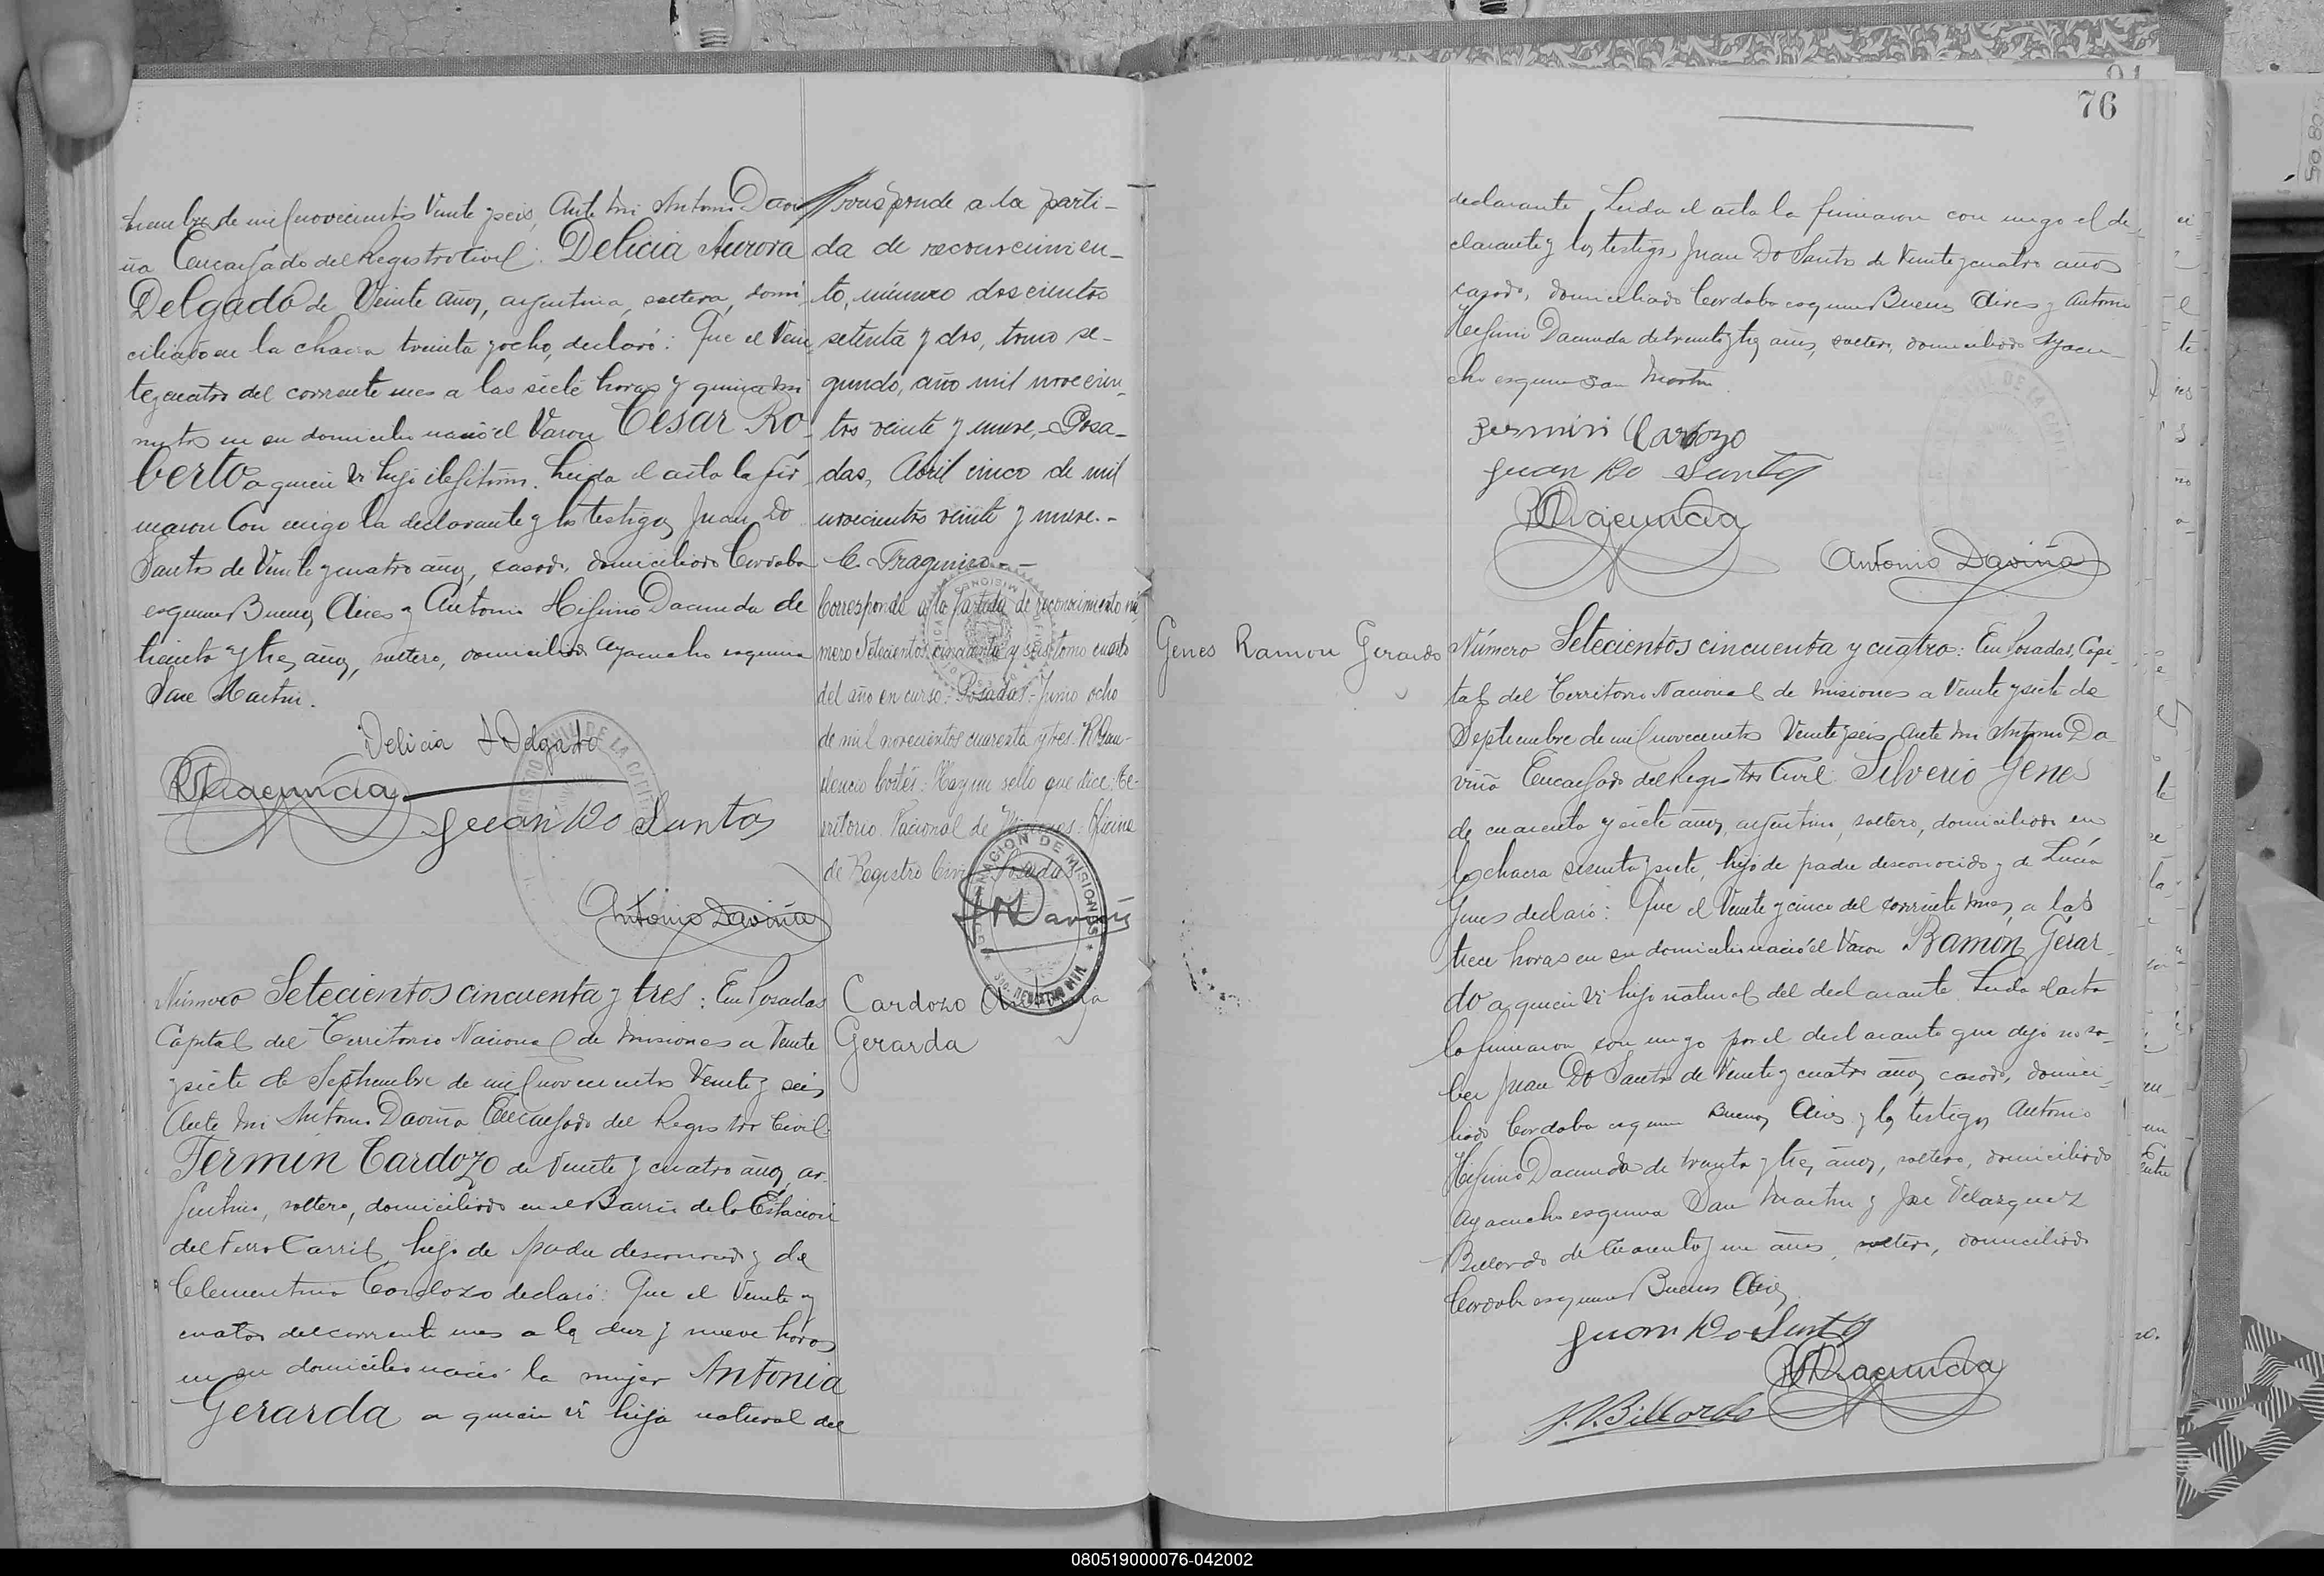 tiembre de mil novecientos Veinte y seis, Ante mi Antonio Davi
ña Encargado del Registro Civil: Delicia Aurora
Delgado de Veinte años, argentina, soltera, domi
ciliada en la chacra treinta y ocho, declaró: Que el Vein
te y cuatro del corriente mes a las siete horas y quince mi
nutos en su domicilio nació el Varon Cesar Ro
berto a quien vi hijo ilegitimo. Leida el acta la fir
maron Con migo la declarante y los testigos Juan Do
Santos de Veinte y cuatro años, casado, domiciliado Cordoba
esquina Buenos Aires y Antonio Higinio Dacunda de
treinta y tres años, soltero, domiciliado Ayacucho esquina
San Martin.
Delicia A Delgado
Juan Do Santos
Antonio Daviña
Número Setecientos cincuenta y tres: En Posadas
Capital del Territorio Nacional de Misiones a Veinte
y siete de Septiembre de mil novecientos Veinte y seis,
Ante mi Antonio Daviña Encargado del Registro Civil:
Fermin Cardozo de Veinte y cuatro años, ar-
gentino, soltero, domiciliado en el Barrio de la Estacion
del Ferro Carril, hijo de padre desconocido y de
Clementina Cardozo declaró: Que el Veinte y
cuatro del corriente mes a las diez y nueve horas
en su domicilio nació la mujer Antonia
Gerarda a quien vi hija natural del
Corresponde a la parti-
da de reconocimien-
to, número doscientos
setenta y dos, tomo se-
gundo, año mil novecien-
tos veinte y nueve, Posa-
das, Abril cinco de mil
novecientos veinte y nueve.-
Corresponde a la partida de reconocimiento nú-
mero Setecientos cincuenta y seis tomo cuarto
del año en curso. Posadas. Junio ocho
de mil novecientos cuarenta y tres. R Gau-
dencio Cortés: Hay un sello que dice: Te-
rritorio Nacional de Misiones. Oficina
de Registro Civil Posadas
Cardozo Antonia
Gerarda
76
declarante Leida el acta la firmaron con migo el de-
clarante y los testigos Juan Do Santos de Veinte y cuatro años
casado, domiciliado Cordoba esquina Buenos Aires y Antonio
Higinio Dacunda de treinta y tres años, soltero, domiciliado Ayacu-
cho esquina San Martin
Fermin Cardozo
Juan Do Santos
Antonio Daviña
Genes Ramon Gerardo
Número Setecientos cincuenta y cuatro: En Posadas, Capi-
tal del Territorio Nacional de Misiones a Veinte y siete de
Septiembre de mil novecientos Veinte y seis, Ante mi Antonio Da-
viña Encargado del Registro Civil: Silverio Genes
de cuarenta y siete años, argentino, soltero, domiciliado en
la chacra sesenta y siete, hijo de padre desconocido y de Lucia
Genes declaró: Que el Veinte y cinco del corriente mes, a las
trece horas en su domicilio nació el Varon Ramón Gerar-
do a quien vi hijo natural del declarante Leida el acta
la firmaron con migo por el declarante que dijo no sa-
ber Juan Do Santos de Veinte y cuatro años, casado, domici-
liado Cordoba esquina Buenos Aires y los testigos Antonio
Higinio Dacunda de treinta y tres años, soltero, domiciliado
Ayacucho esquina San Martin y José Velazquez
Billordo de Cuarenta y un años, soltero, domiciliado
Cordoba esquina Buenos Aires
Juan Do Santos
J.V. Billordo
080519000076-042002